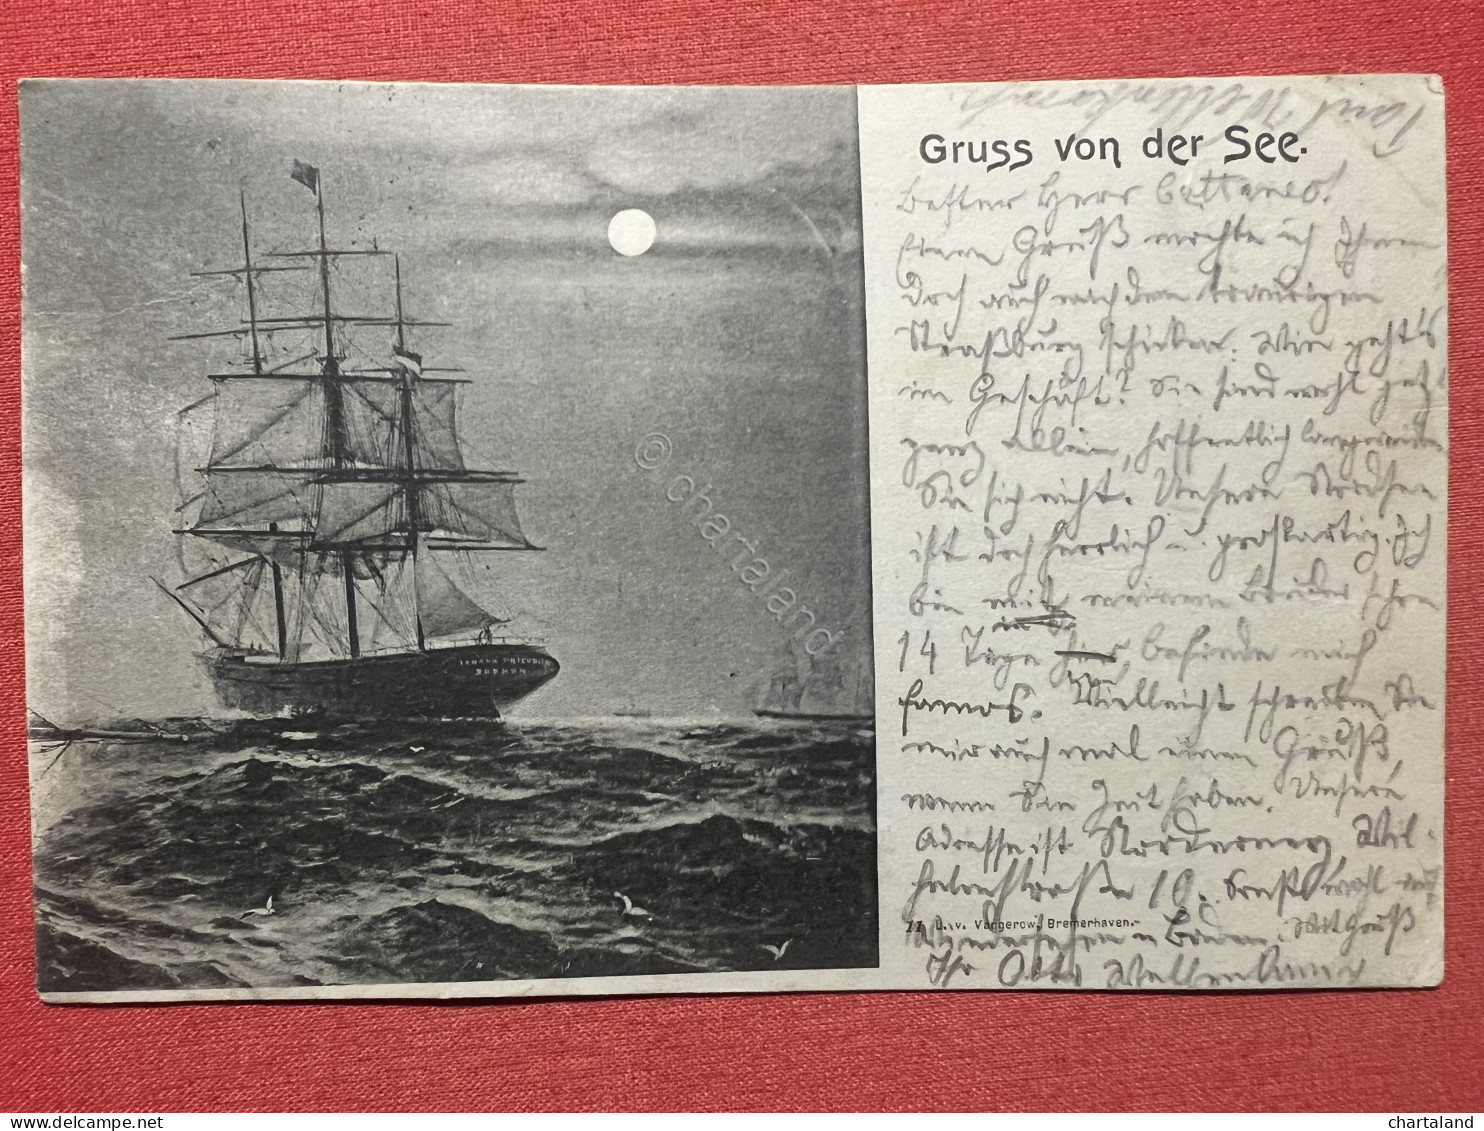 Gruss von der See.
Bester Herr Cattaneo!
Einen Gruß möchte ich Ihnen
doch auch nach dem traurigen
Straßburg schicken. Wie geht's
im Geschäft? Sie sind wohl jetzt
ganz allein, hoffentlich langweilen
Sie sich nicht. Unsere Nordsee
ist doch herrlich u. großartig. Ich
bin mit meinem Bruder schon
14 Tage hier, befinde mich
famos. Vielleicht schreiben Sie
mir auch mal einen Gruß,
wenn Sie Zeit haben. Unsere
Adresse ist Norderney, Wil-
helmstraße 10. Sonst wohl auf
Wiedersehen in Mit Gruß
Ihr Otto
77 D. v. Vangerow, Bremerhaven.
Paul
© chartaland
chartaland